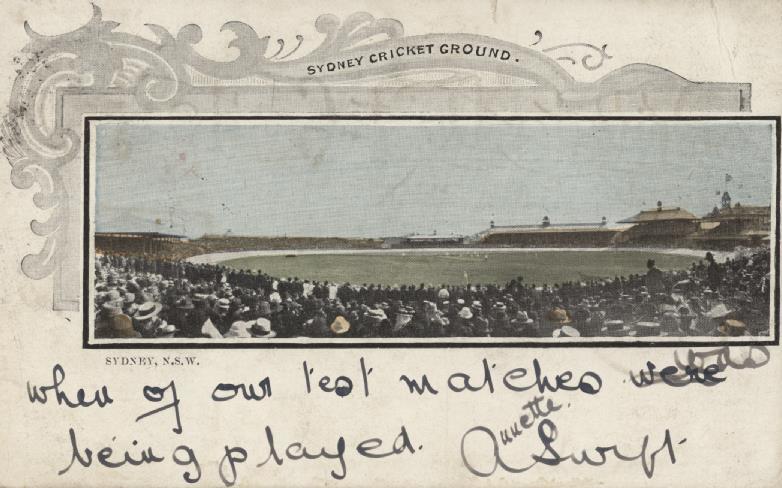 SYDNEY CRICKET GROUND.
SYDNEY, N.S.W.
when of our test matches were was
being played. Annette. A Swift